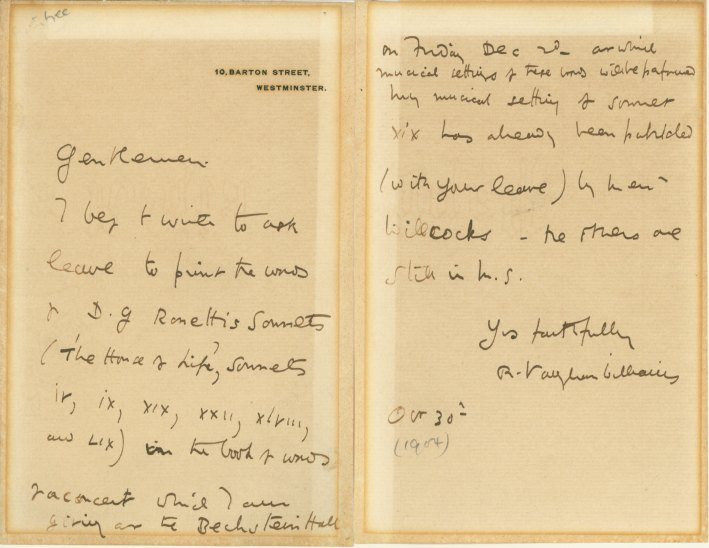 10, BARTON STREET,
WESTMINSTER.
Gentlemen.
I beg to write to ask
leave to print the words
of D. G Rossettis Sonnets
('The House of Life', Sonnets
iv, ix, xix, xxii, xlviii,
and LIX) in the book of words
of a concert which I am
giving at the Bechstein Hall
on Friday Dec 2nd at which
musical settings of these words will be performed
My musical setting of sonnet
xix has already been published
(with your leave) by Messrs
Willcocks - the others are
still in M.S.
Yrs faithfully
R. Vaughan Williams
Oct 30th
(1904)